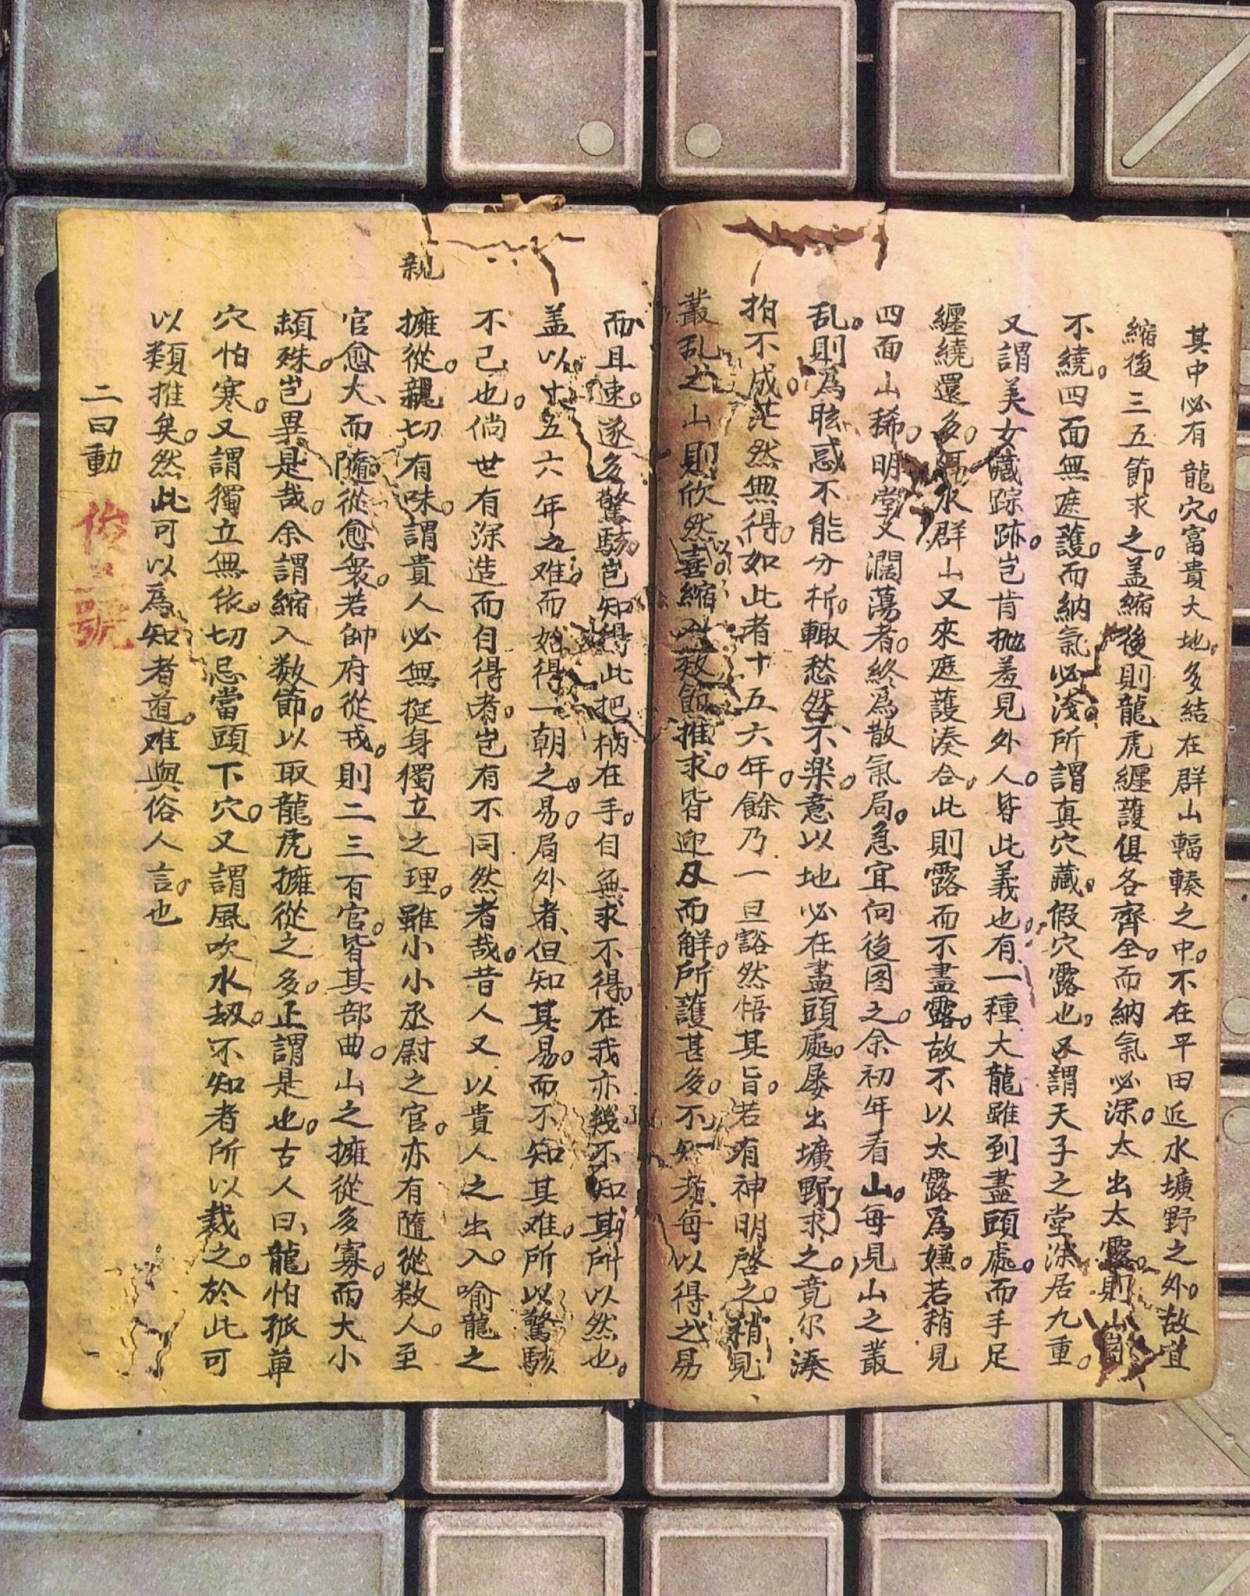 其中必有龍穴。富貴大地。多結在群山輻輳之中。不在平田近水壙野之外。故宜
縮後三五節求之。盖縮後則龍虎纒護俱各齊全。而納氣必深。太出太露。則山
不繞。四面無遮護。而納氣必淺。所謂真穴藏。假穴露也。又謂天子之堂深居九重。
又謂美女藏踪跡。岂肯抛羞見外人。皆此義也。有一種大龍雖到盡頭處。而手足
纒繞還多。水群山又來遮護湊合。此則露而不盡露。故不以太露爲嫌。若稍見
四面山稀。明堂又濶蕩者。終爲散氣局。急宜向後图之。余初年看山。每見山之叢
乱。則爲眩惑不能分析。輙愁然不樂。意以地必在盡頭處。屡出壙野求之。竟尔湊
拍不成。茫然無得。如此者十五六年。餘乃一旦豁然悟其旨。若有神明啓之。稍見
叢乱之山則欣然喜縮入数節推求。皆迎刃而解。所護甚多。不知者每以得之易
而且速。遂多驚駭。岂知得此把柄在手。自無求不得。在我亦幾不知其所以然也。
盖以十五六年之难。而始得一朝之易。局外者、但知其易。而不知其难。所以驚駭
不已也。倘世有深造而自得者。岂有不同然者哉。昔人又以貴人之出入。喻龍之
親
擁從。親切有味。謂貴人必無挺身獨立之理。雖小小丞尉之官。亦有隨從数人。至
官愈大、而隨從愈衆。若帥府從戎。則二三百官。皆其部曲。山之擁從多寡。而大小
頓殊。岂異是哉。余謂縮入数節。以取龍虎擁從之多。正謂是也。古人曰、龍怕孤单
穴怕寒。又謂獨立無依。切忌當頭下穴。又謂風吹水刼。不知者所以裁之。於此可
以類推矣。然此可以爲知者道。难與俗人言。也
二曰動
俊 號